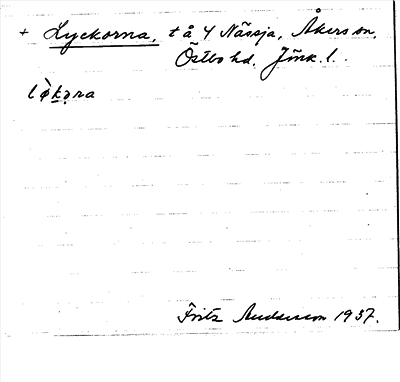 + Lyckorna, t å 4 Nässja, Åkers sn,
Östbo hd, Jönk. l.
lø̀kəra
Fritz Andersson 1937.